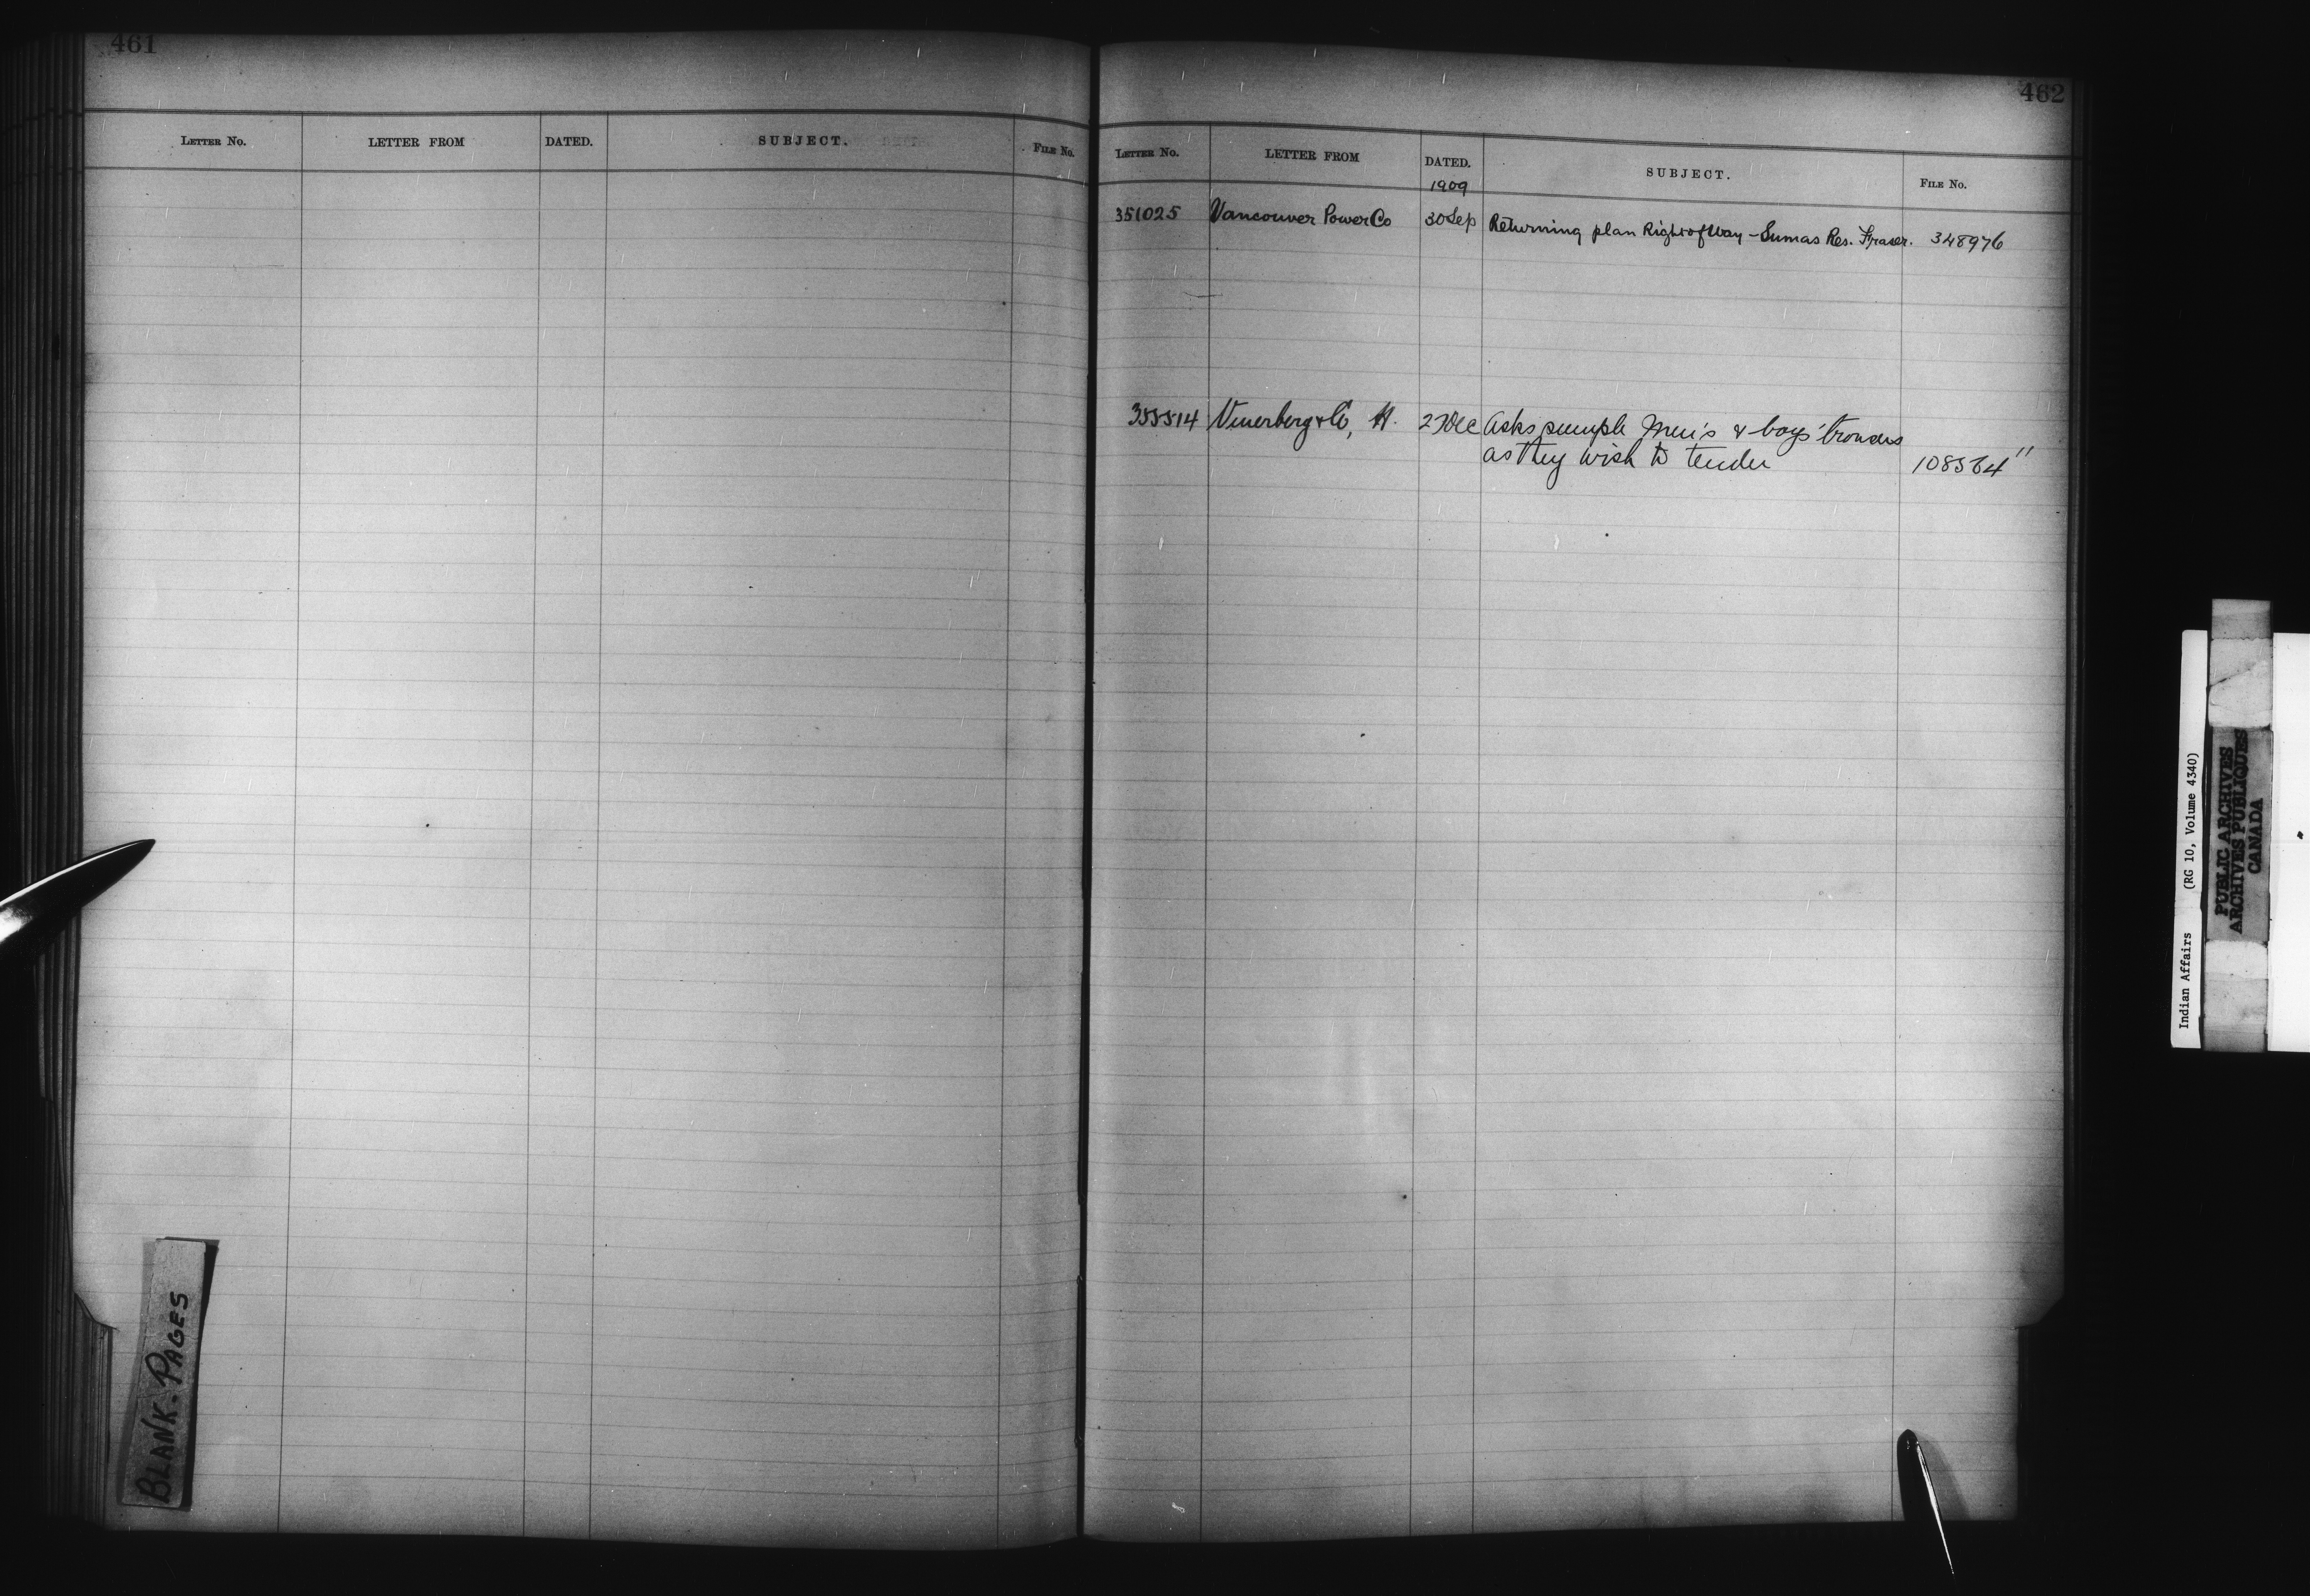 461
LETTER No. LETTER FROM DATED. SUBJECT. FILE No.
BLANK. PAGES
462
LETTER No. LETTER FROM DATED. SUBJECT. FILE No.
1909
351025 Vancouver Power Co 30 Sep Returning plan Right of Way - Sumas Res. Fraser. 348976
355514 & Co, H. 27 Dec Asks sample Men's & boys' trousers
as they wish to tender 108564"
Indian Affairs (RG 10, Volume 4340)
PUBLIC ARCHIVES
ARCHIVES PUBLIQUES
CANADA